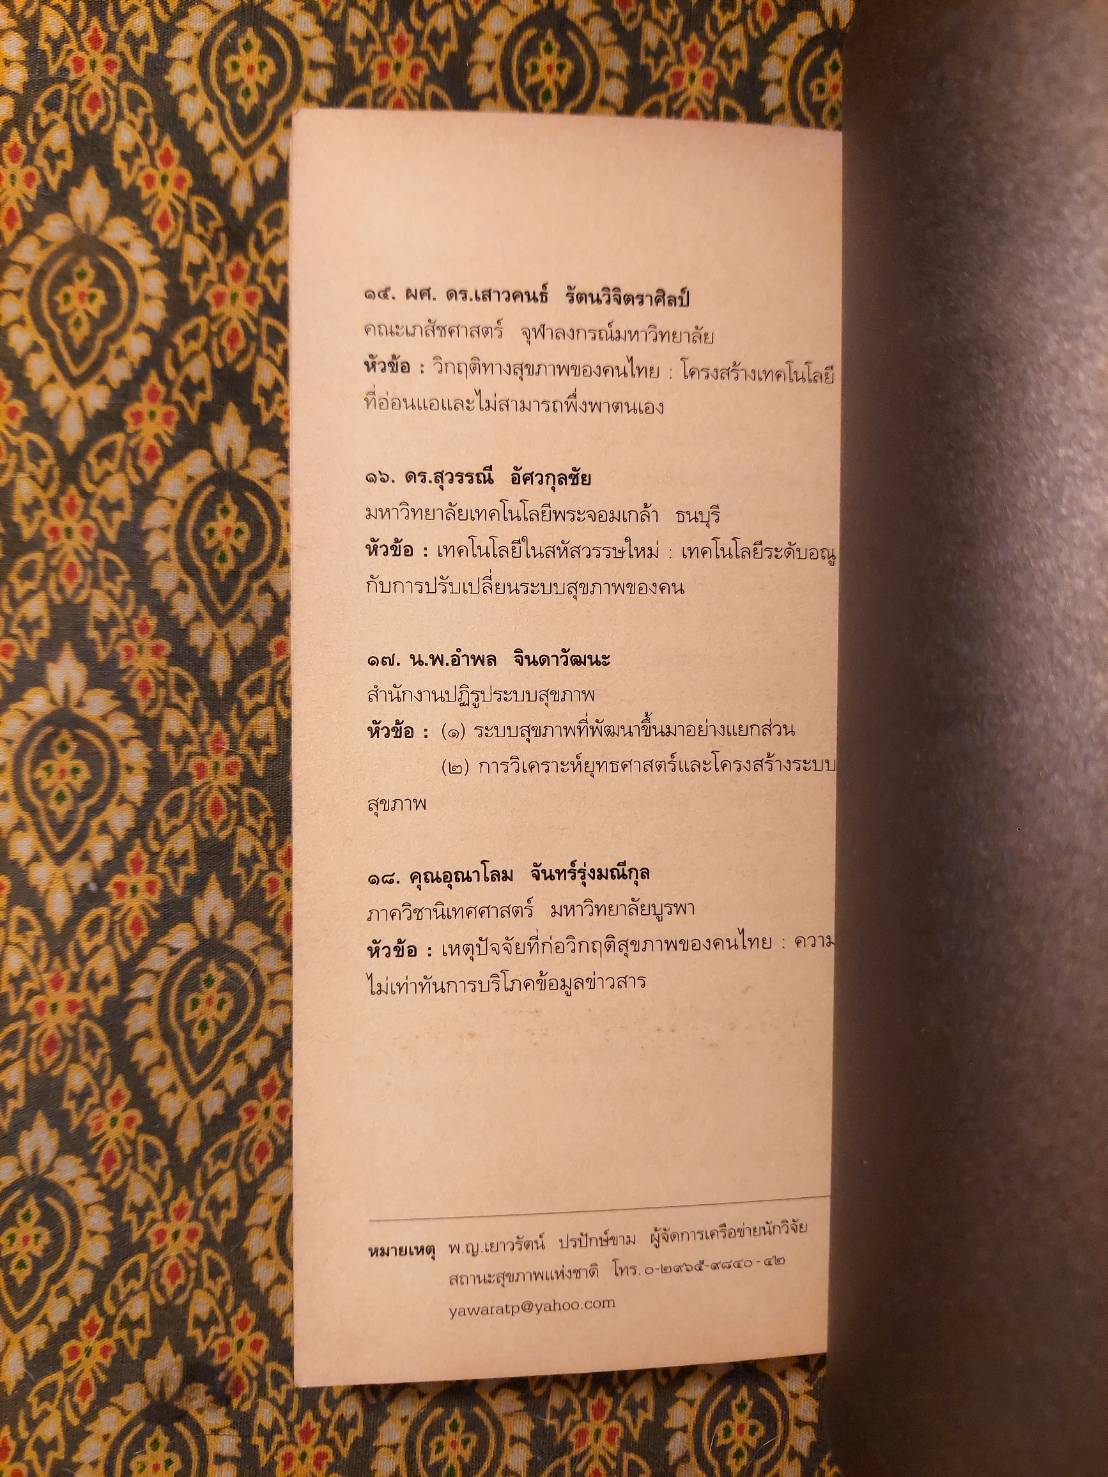 ๑๕. ผศ. ดร.เสาวคนธ์ รัตนวิจิตราศิลป์
คณะเภสัชศาสตร์ จุฬาลงกรณ์มหาวิทยาลัย
หัวข้อ : วิกฤติทางสุขภาพของคนไทย : โครงสร้างเทคโนโลยี
ที่อ่อนแอและไม่สามารถพึ่งพาตนเอง
๑๖. ดร.สุวรรณี อัศวกุลชัย
มหาวิทยาลัยเทคโนโลยีพระจอมเกล้า ธนบุรี
หัวข้อ : เทคโนโลยีในสหัสวรรษใหม่ : เทคโนโลยีระดับอณู
กับการปรับเปลี่ยนระบบสุขภาพของคน
๑๗. น.พ.อำพล จินดาวัฒนะ
สำนักงานปฏิรูประบบสุขภาพ
หัวข้อ : (๑) ระบบสุขภาพที่พัฒนาขึ้นมาอย่างแยกส่วน
(๒) การวิเคราะห์ยุทธศาสตร์และโครงสร้างระบบ
สุขภาพ
๑๘. คุณอุณาโลม จันทร์รุ่งมณีกุล
ภาควิชานิเทศศาสตร์ มหาวิทยาลัยบูรพา
หัวข้อ : เหตุปัจจัยที่ก่อวิกฤติสุขภาพของคนไทย : ความ
ไม่เท่าทันการบริโภคข้อมูลข่าวสาร
หมายเหตุ พ.ญ.เยาวรัตน์ ปรปักษ์ขาม ผู้จัดการเครือข่ายนักวิจัย
สถานะสุขภาพแห่งชาติ โทร. ๐-๒๙๖๕-๙๘๔๐-๔๒
yawaratp@yahoo.com